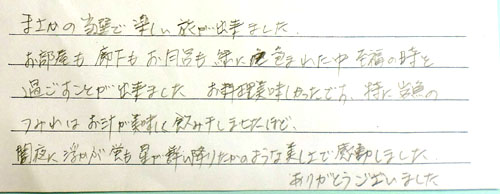 まさかの当選で 楽しい旅が出来ました.
お部屋も 廊下も お風呂も 緑に包まれた中 至福の時を
過ごすことが出来ました お料理美味しかったです. 特に岩魚の
つみれは お汁が美味しく 飲み干しましたほど.
闇夜に 浮かぶ蛍も 星が舞い降りたかのような美しさで 感動しました.
ありがとうございました